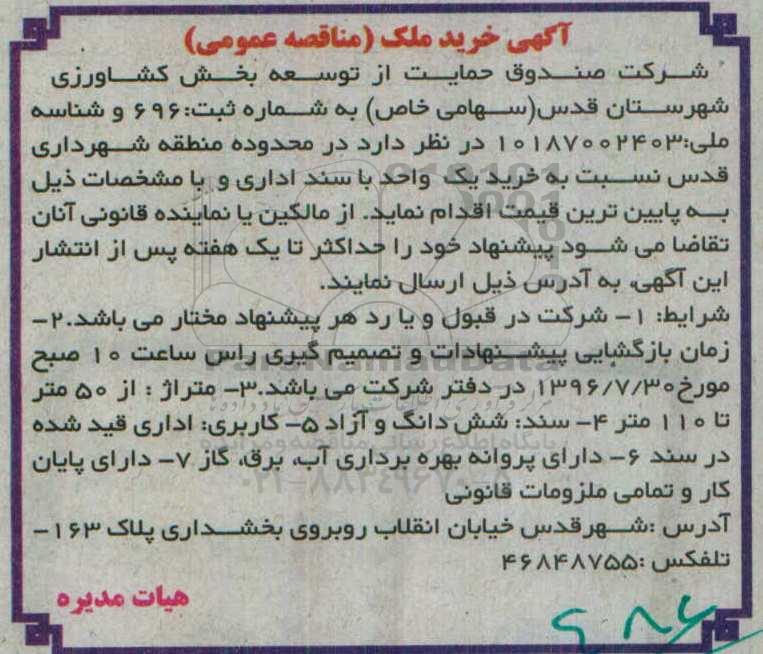 آگهی خرید ملک (مناقصه عمومی)
شرکت صندوق حمایت از توسعه بخش کشاورزی
شهرستان قدس(سهامی خاص) به شماره ثبت:۶۹۶ و شناسه
ملی:۱۰۱۸۷۰۰۲۴۰۳ در نظر دارد در محدوده منطقه شهرداری
قدس نسبت به خرید یک واحد با سند اداری و با مشخصات ذیل
به پایین ترین قیمت اقدام نماید. از مالکین یا نماینده قانونی آنان
تقاضا می شود پیشنهاد خود را حداکثر تا یک هفته پس از انتشار
این آگهی، به آدرس ذیل ارسال نمایند.
شرایط: ۱- شرکت در قبول و یا رد هر پیشنهاد مختار می باشد.۲-
زمان بازگشایی پیشنهادات و تصمیم گیری راس ساعت ۱۰ صبح
مورخ۱۳۹۶/۷/۳۰ در دفتر شرکت می باشد.۳- متراژ : از ۵۰ متر
تا ۱۱۰ متر ۴- سند: شش دانگ و آزاد ۵- کاربری: اداری قید شده
در سند ۶- دارای پروانه بهره برداری آب، برق، گاز ۷- دارای پایان
کار و تمامی ملزومات قانونی
آدرس :شهرقدس خیابان انقلاب روبروی بخشداری پلاک ۱۶۳-
تلفکس :۴۶۸۴۸۷۵۵
هیات مدیره
ParsNamadData
پایگاه اطلاع رسانی مناقصه و مزایده
۰۲۱-۸۸۳۴۹۶۷۰-۵